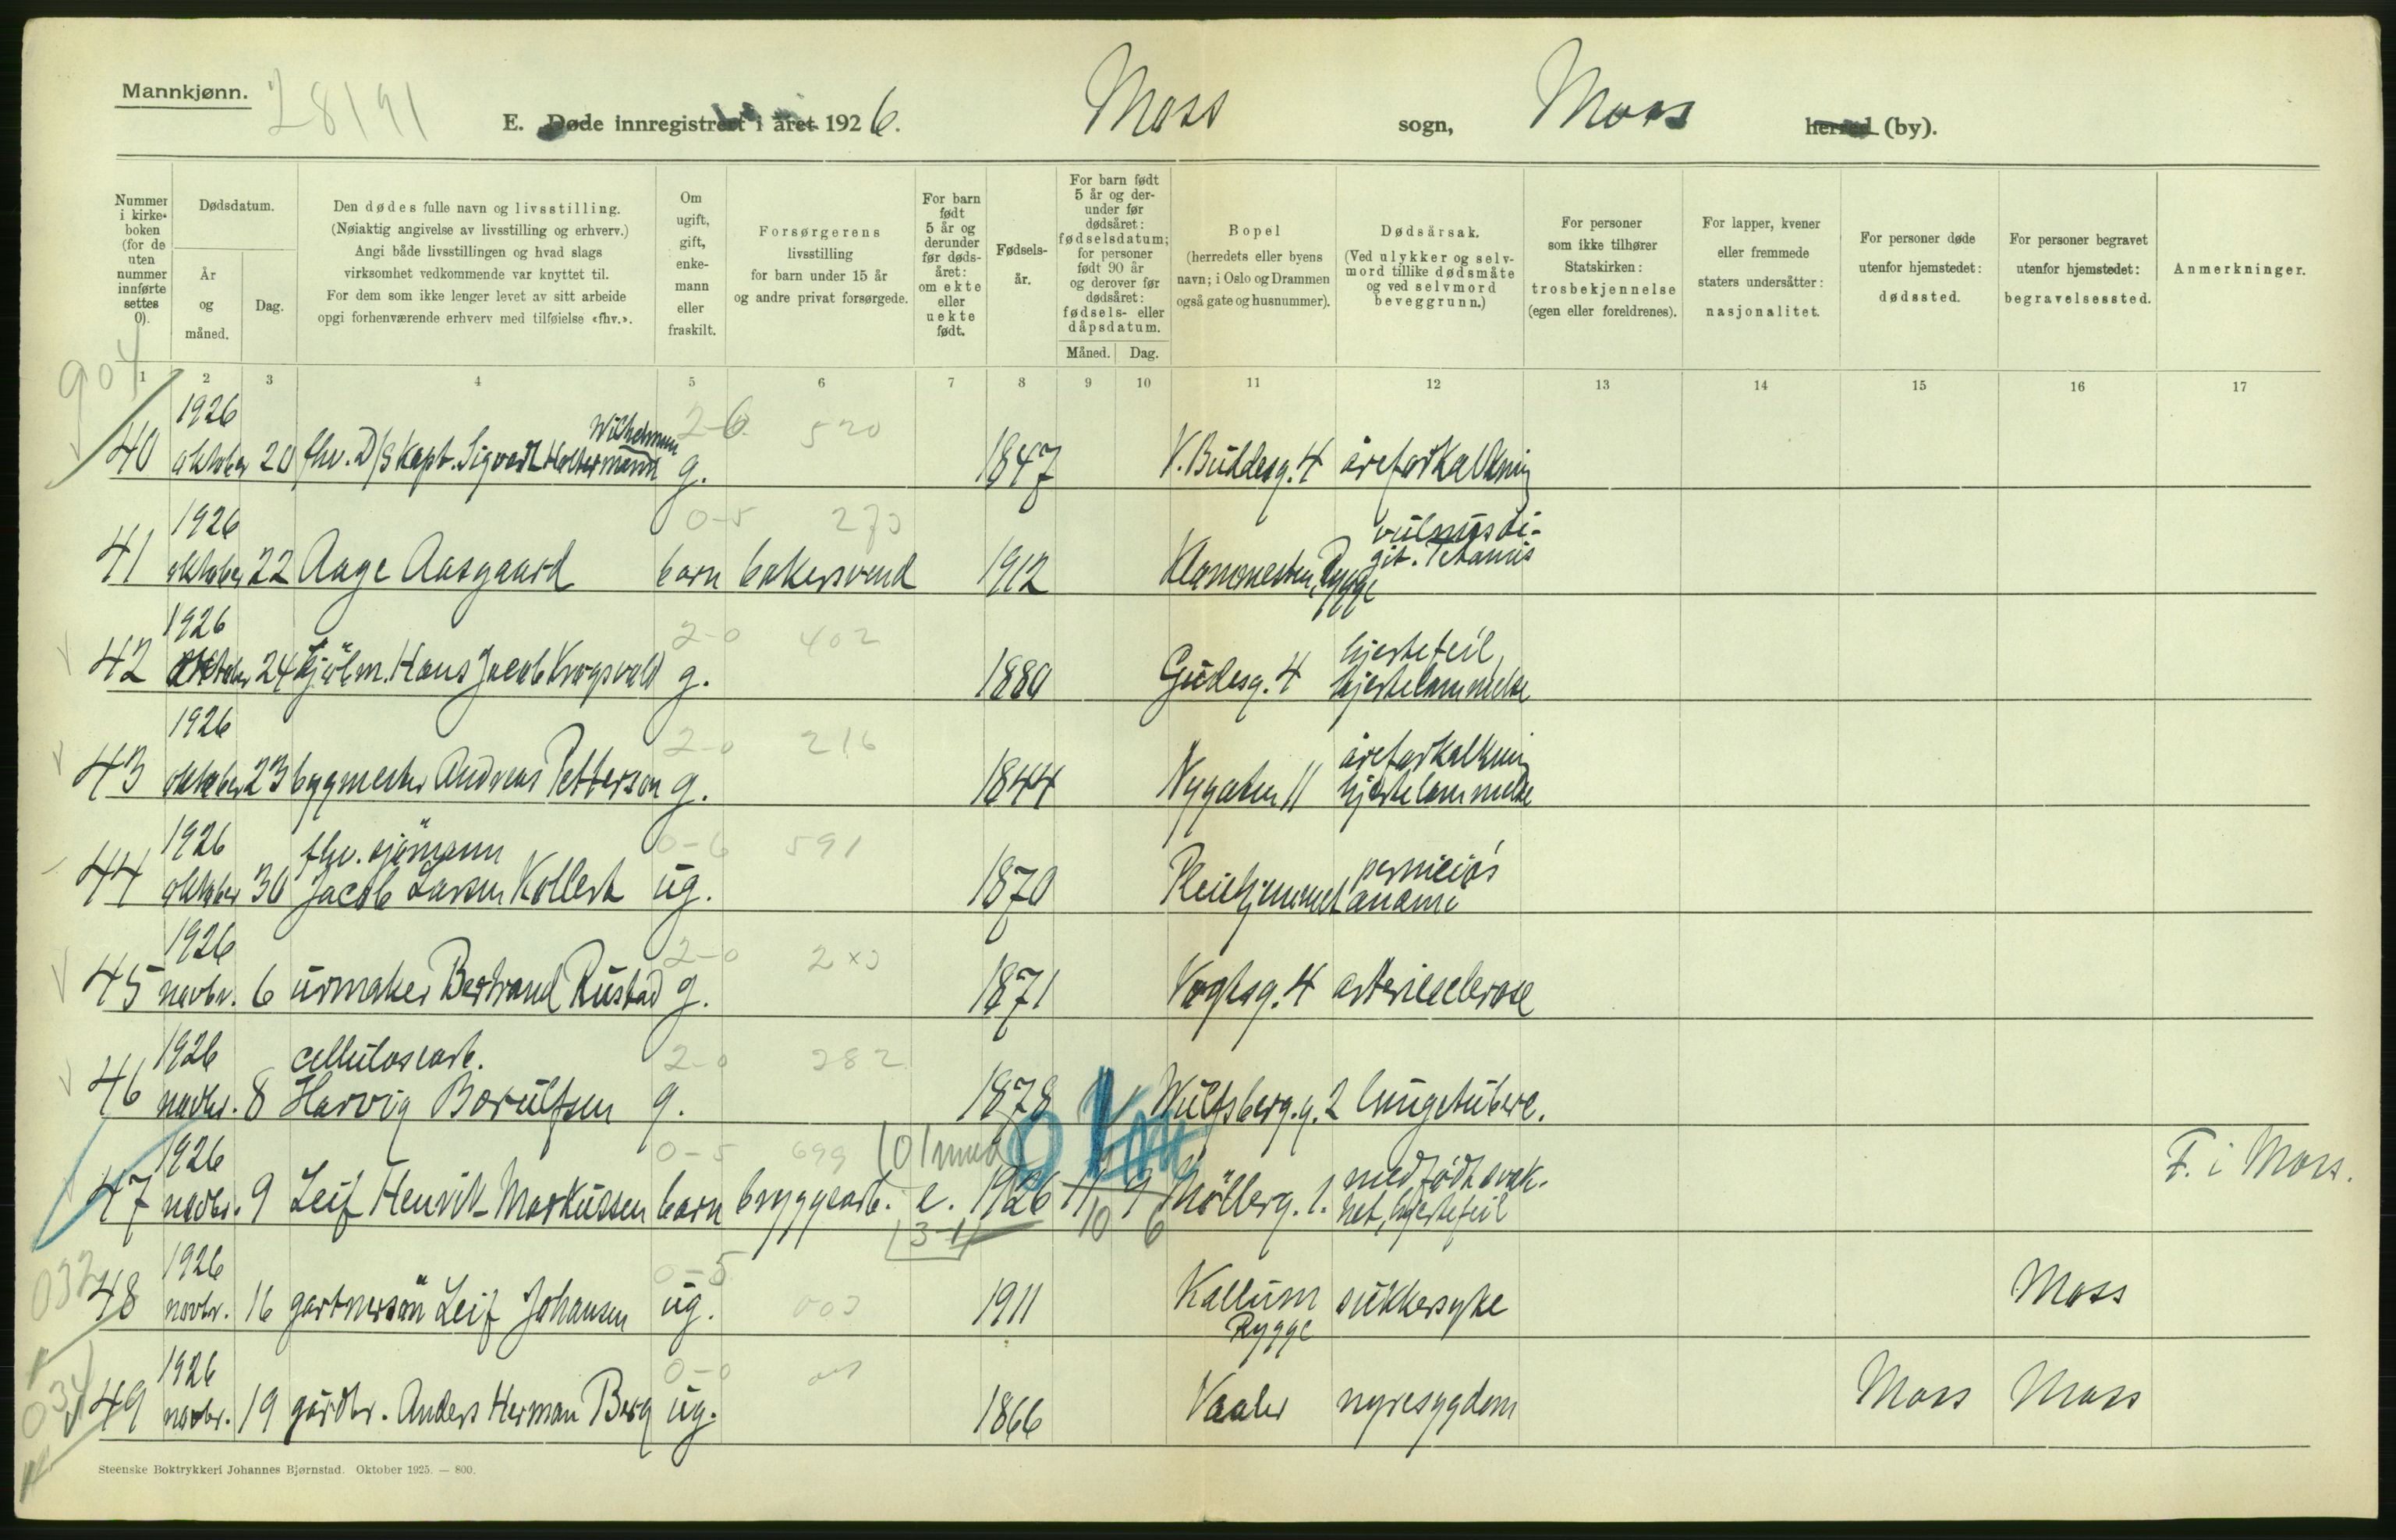 Mannkjønn.
28191
E. Døde innregistrert i året 1926. Moss sogn, Moss herred (by).
Nummer i kirke-boken (for de uten nummer innførte settes 0).
Dødsdatum.
År og måned.
Dag.
Den dødes fulle navn og livsstilling.
(Nøiaktig angivelse av livsstilling og erhverv.)
Angi både livsstillingen og hvad slags
virksomhet vedkommende var knyttet til.
For dem som ikke lenger levet av sitt arbeide
opgi forhenværende erhverv med tilføielse «fhv.».
Om ugift, gift, enke-mann eller fraskilt.
Forsørgerens
livsstilling
for barn under 15 år
og andre privat forsørgede.
For barn født 5 år og derunder før døds-året: om ekte eller uekte født.
Fødsels-år.
For barn født 5 år og der-under før dødsåret: fødselsdatum; for personer født 90 år og derover før dødsåret: fødsels- eller dåpsdatum.
Måned. Dag.
Bopel
(herredets eller byens
navn; i Oslo og Drammen
også gate og husnummer).
Dødsårsak.
(Ved ulykker og selv-
mord tillike dødsmåte
og ved selvmord
beveggrunn.)
For personer
som ikke tilhører
Statskirken:
trosbekjennelse
(egen eller foreldrenes).
For lapper, kvener
eller fremmede
staters undersåtter:
nasjonalitet.
For personer døde
utenfor hjemstedet:
dødssted.
For personer begravet
utenfor hjemstedet:
begravelsessted.
Anmerkninger.
1 2 3 4 5 6 7 8 9 10 11 12 13 14 15 16 17
904
1926 Wilhelmsen 2-6 520
40 oktober 20 fhv. D/S Kapt. Sigvart Holtermann g. 1847 V. Buddesg. 4 åreforkalkning
1926 0-5 273 vulnus di-
41 oktober 22 Aage Aasgaard barn bakersvend 1912 Klommesten, Rygge git. Tetanus
1926 2-0 402 hjertefeil,
42 oktober 24 Hans Jacob Krogsvold g. 1880 Gudesg. 4 hjertelammelse
1926 2-0 216 åreforkalkning
43 oktober 23 bygmester Andreas Petterson g. 1844 Nygaten 11 hjertelammelse
1926 fhv. sjömann 0-6 591 perniciös
44 oktober 30 Jacob Larsen Kollerk ug. 1870 Pleiehjemmet anæmi
1926 2-0 2x3
45 novbr. 6 urmaker Bertrand Rustad g. 1871 Vogtsg. 4 arteriesclerose
1926 cellulosearb. 2-0 282
46 novbr. 8 Harvig Borulfsen g. 1878 Wulfsberg. g. 2 lungetuberc.
1926 0-5 699 medfödt svak- F. i Moss.
47 novbr. 9 Leif Henrik Markussen barn bryggearb. e. 1926 Möllerg. 1. het, hjertefeil
3-1 10 6
032
1926 0-5
48 novbr. 16 gartnersön Leif Johansen ug. 003 1911 Kallum sukkersyke Moss
Rygge
034
1926 0-0
49 novbr. 19 gårdbr. Anders Herman Berg ug. 1866 Vaaler nyresygdom Moss Moss
Steenske Boktrykkeri Johannes Bjørnstad. Oktober 1925. — 800.